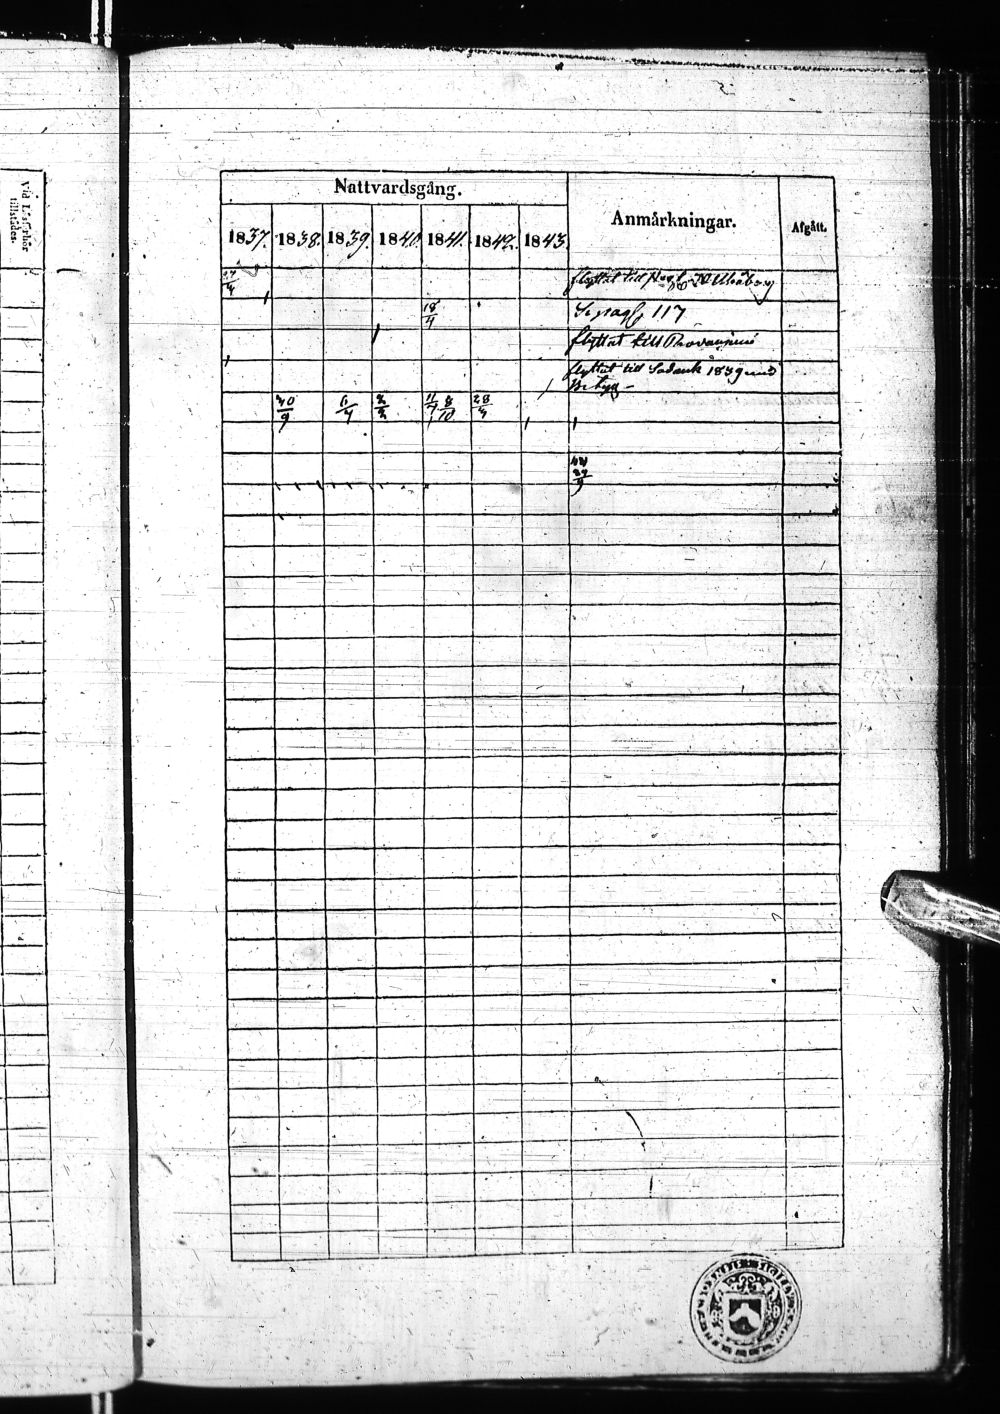 Vid Läsförhör
tillstädes.
Nattvardsgång.
Anmärkningar.
Afgått.
1837. 1838. 1839. 1840. 1841. 1842. 1843.
flyttat till
18/4 117
flyttat till Rovaniemi
flyttat till Sodank 1839 med
Betyg
30/9 6/4 2/2 11/7 8/10 28/3